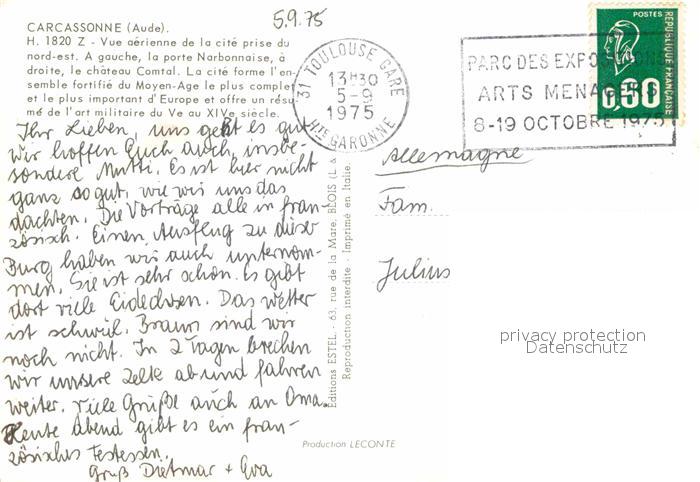 5.9.75
CARCASSONNE (Aude).
H. 1820 Z - Vue aérienne de la cité prise du
nord-est. A gauche, la porte Narbonnaise, à
droite, le château Comtal. La cité forme l'en-
semble fortifié du Moyen-Age le plus complet
et le plus important d'Europe et offre un résu-
mé de l'art militaire du Ve au XIVe siècle.
31 TOULOUSE GARE
13H30
5-9
1975
Hte GARONNE
PARC DES EXPOSITIONS
ARTS MENAGERS
8-19 OCTOBRE 1975
POSTES
REPUBLIQUE FRANÇAISE
0,50
Ihr Lieben, uns geht es gut
wir hoffen Euch auch, insbe-
sondere Mutti. Es ist hier nicht
ganz so gut, wie wir uns das
dachten. Die Vorträge alle in fran-
zösisch. Einen Ausflug zu dieser
Burg haben wir auch unternom-
men. Sie ist sehr schön. Es gibt
dort viele Eidechsen. Das Wetter
ist schwül. Braun sind wir
noch nicht. In 2 Tagen brechen
wir unsere Zelte ab und fahren
weiter. Viele Grüße auch an Oma.
Heute abend gibt es ein fran-
zösisches Festessen.
Gruß Dietmar + Eva
Editions ESTEL - 63, rue de la Mare, BLOIS (L &
Reproduction interdite - Imprimé en Italie.
Production LECONTE
Allemagne
Fam.
Julius
privacy protection
Datenschutz